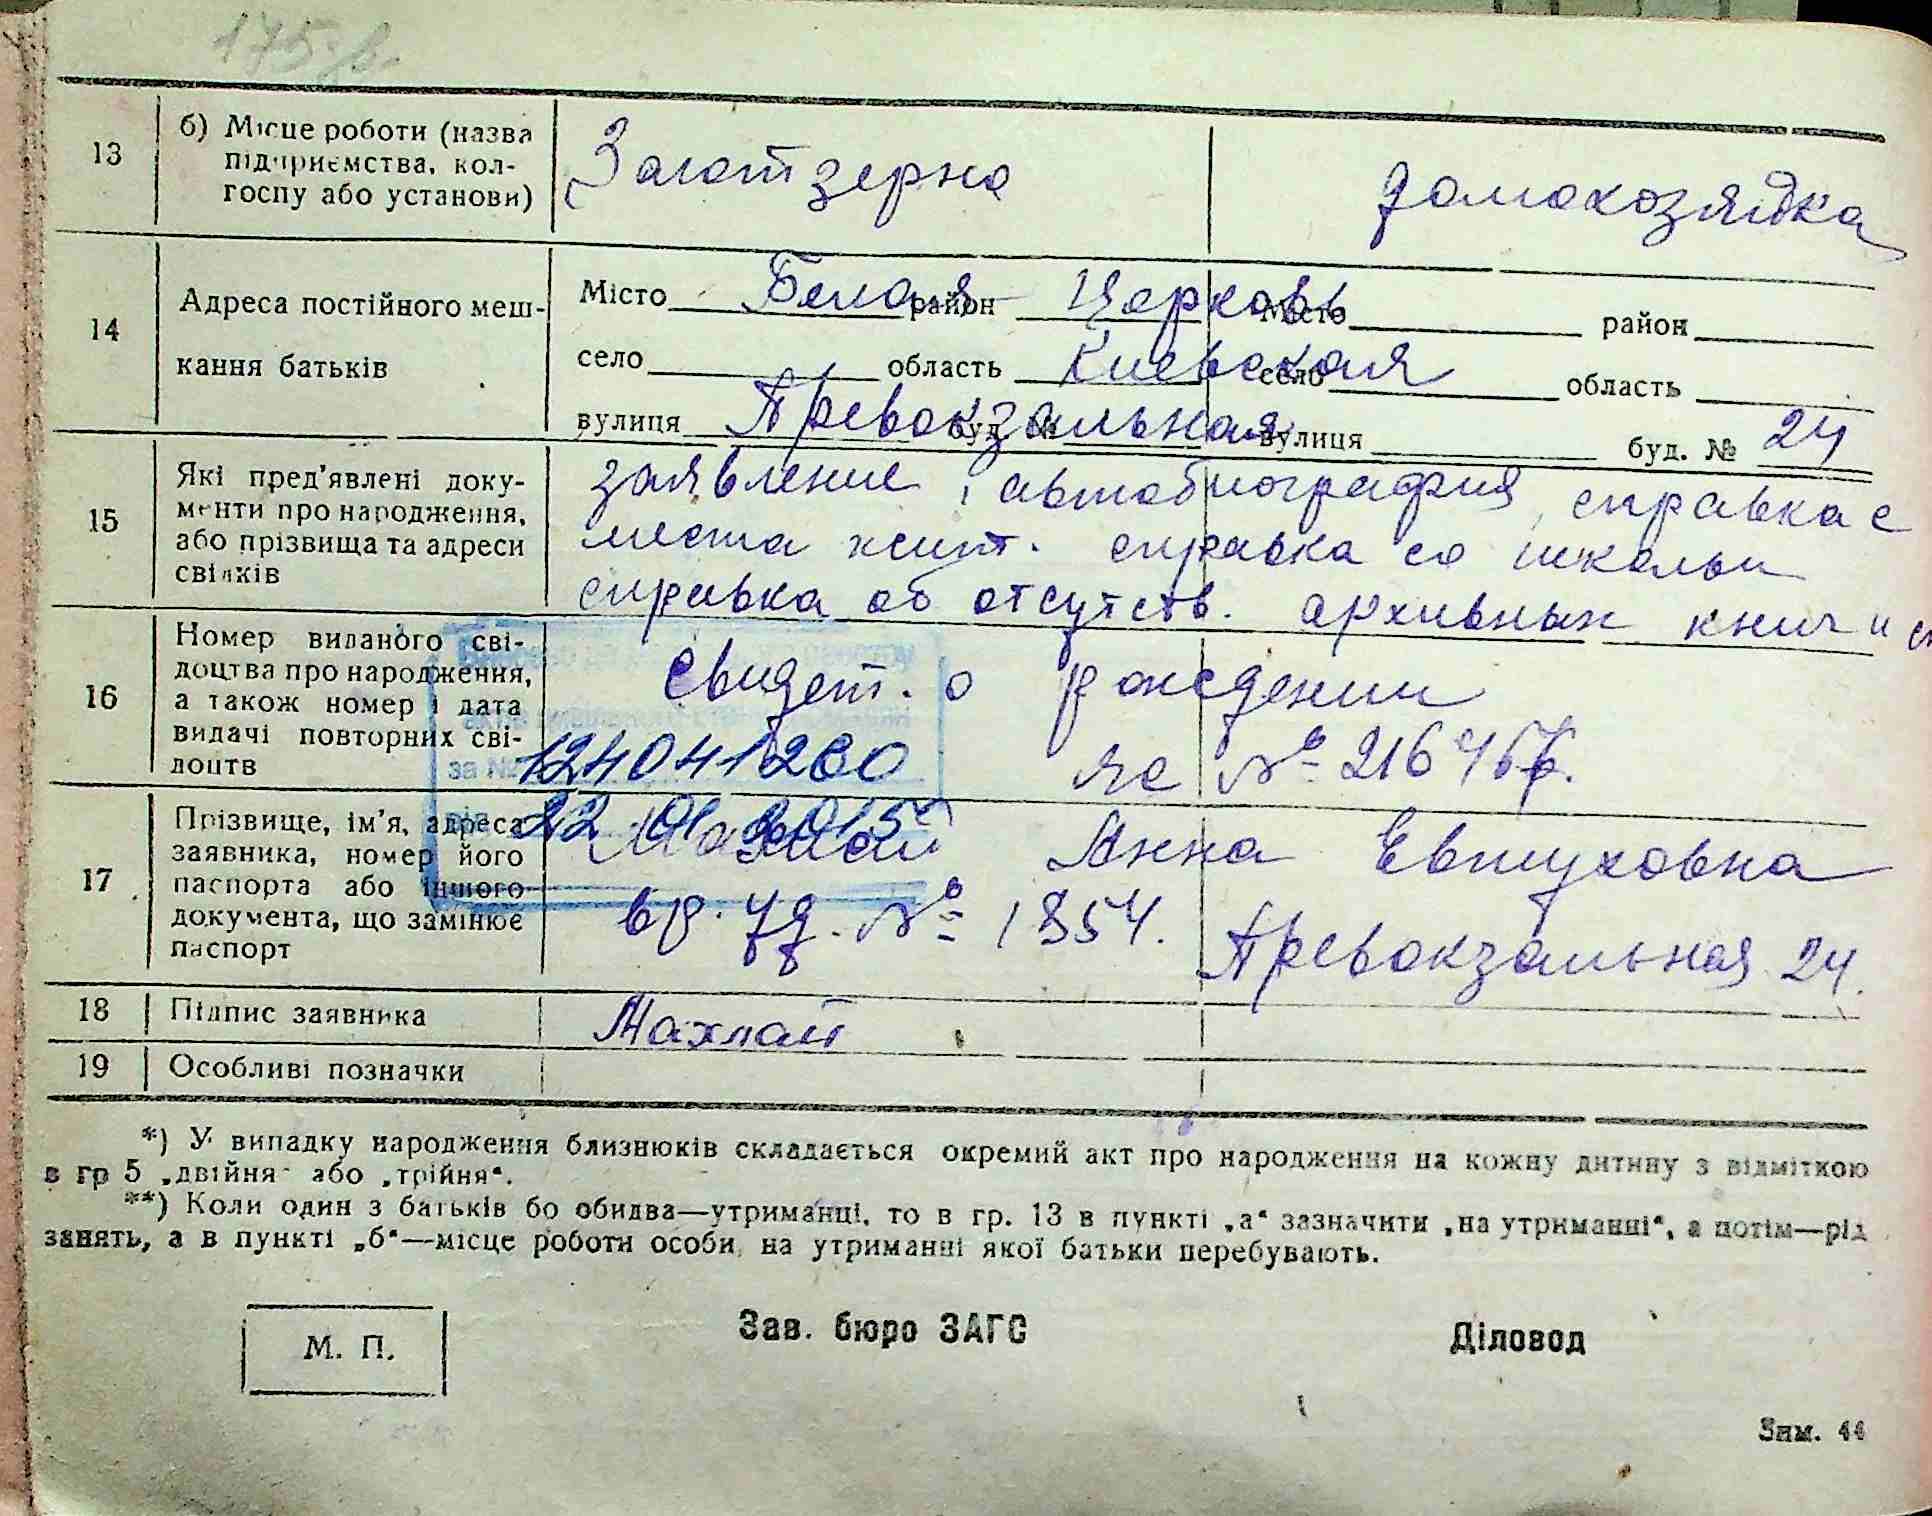 175 зв.
13
б) Місце роботи (назва
підприємства, кол-
госпу або установи)
Заготзерно
домохозяйка
14
Адреса постійного меш-
кання батьків
Місто Белая район Церковь Місто район
село область Киевская село область
вулиця Превокзальная буд. № вулиця буд. № 24
15
Які пред'явлені доку-
менти про народження,
або прізвища та адреси
свідків
заявление, автобиография, справка с
места жит. справка со школы
справка об отсутств. архивных книг и
16
Номер виданого сві-
доцтва про народження,
а також номер і дата
видачі повторних сві-
доцтв
свидет. о рождении
за № 124041260
ЯС №
22.01.2015
17
Прізвище, ім'я, адреса
заявника, номер його
паспорта або іншого
документа, що замінює
паспорт
Махлай Анна Евтуховна
вр. уд. № 1354.
Превокзальная 24.
18
Підпис заявника
Махлай
19
Особливі позначки
*) У випадку народження близнюків складається окремий акт про народження на кожну дитину з відміткою
в гр 5 „двійня" або „трійня".
**) Коли один з батьків бо обидва—утриманці, то в гр. 13 в пункті „а" зазначити „на утриманні", а потім—рід
занять, а в пункті „б"—місце роботи особи, на утриманні якої батьки перебувають.
М. П.
Зав. бюро ЗАГС
Діловод
Зам. 44